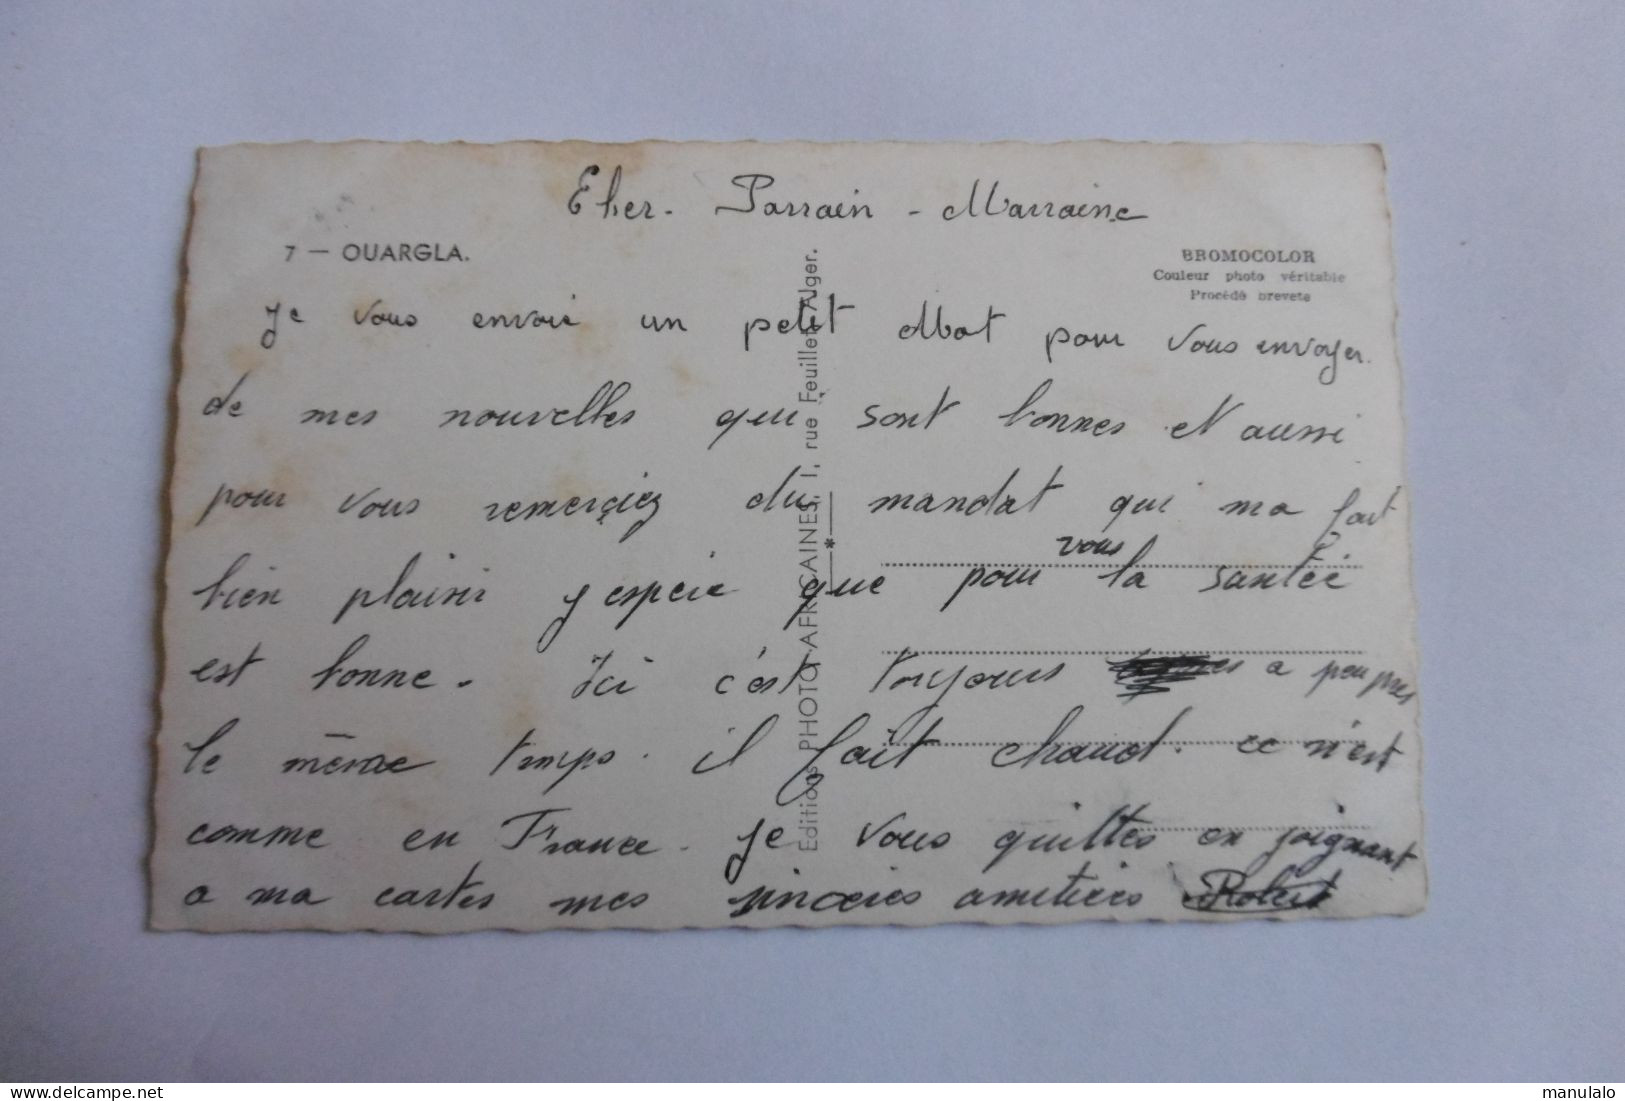 Cher. Parrain - Marraine
7 — OUARGLA.
BROMOCOLOR
Couleur photo véritable
Procédé breveté
Je vous envoie un petit Mot pour vous envoyer
de mes nouvelles qui sont bonnes et aussi
pour vous remerçiez du mandat qui ma fait
bien plaisir j espére que pour vous la santée
est bonne. Ici c'est toujours a peu pres
le même temps. il fait chaud. ce n'est
comme en France. Je vous quittes en joignant
a ma cartes mes sincères amitiées Robert
Editions PHOTO-AFRICAINES, 1, rue Feuillet, Alger.
manulalo